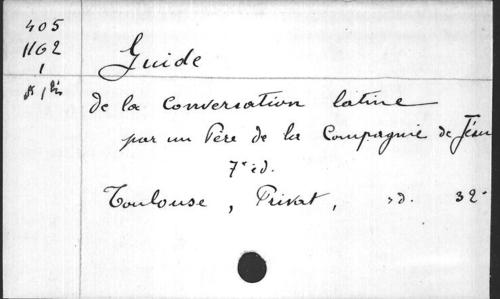 405
1162
1
Guide
de la Conversation latine
par un Père de la Compagnie de Jésu
7e éd.
Toulouse, Privat, s.d. 32°